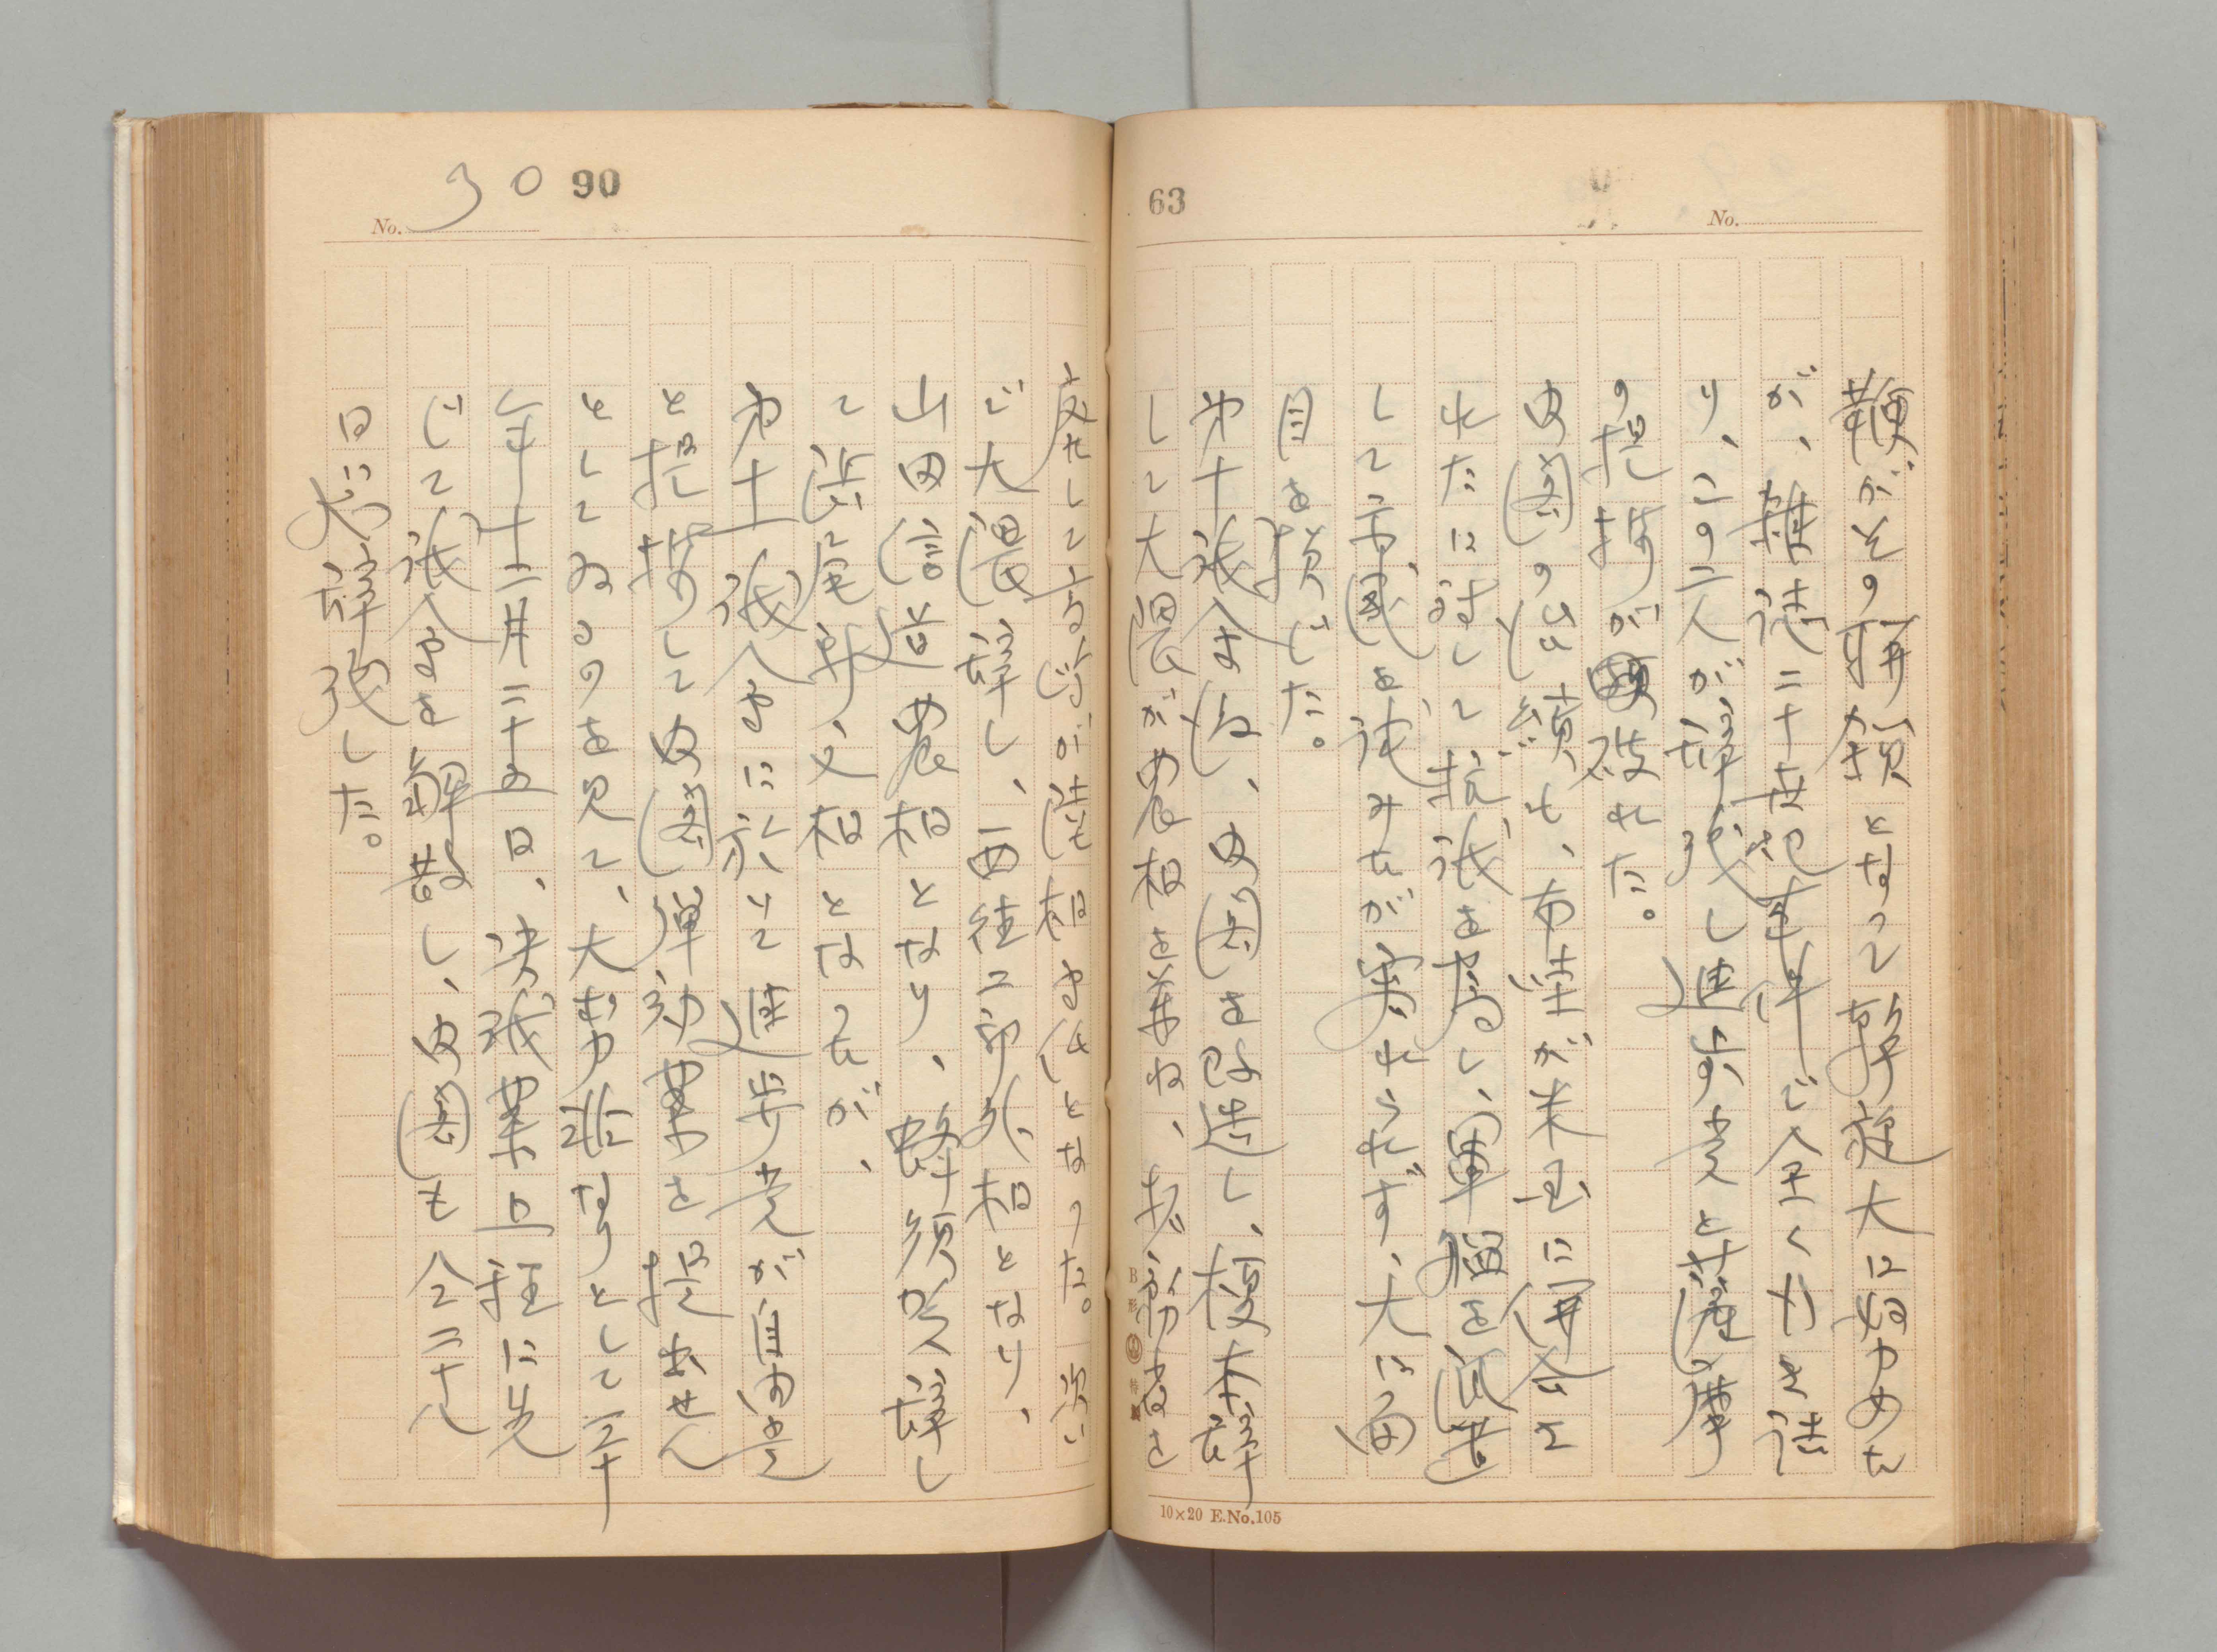 63
No.
鞭がその頭領となつて斡旋大に努力めた
が、横浜二十世紀事件で全く力を失
り、この二人が辞職し進歩党と薩摩
の提携が破れた。
内閣の治績も、布哇が米国に併合さ
れたに対して抗議を為し、軍艦を派遣
して示威を試みたが容れられず、大に面
目を損じた。
第十議会後、内閣を改造し、榎本辞
して大隈が農相を兼ね、
10×20 E.No.105
90
30
No.
して高島が陸相専任となつた。次い
で大隈辞し、西徳二郎外相となり、
山田信道農相となり、蜂須賀辞し
て浜尾新文相となつたが、
第十一議会に於いて進歩党が自由党
と提携して内閣弾劾案を提出せん
としてゐるのを見て、大勢非なりとして三十
年十二月二十五日、決議案上程に先
じて議会を解散し、内閣も仝二十八
日に総辞職した。